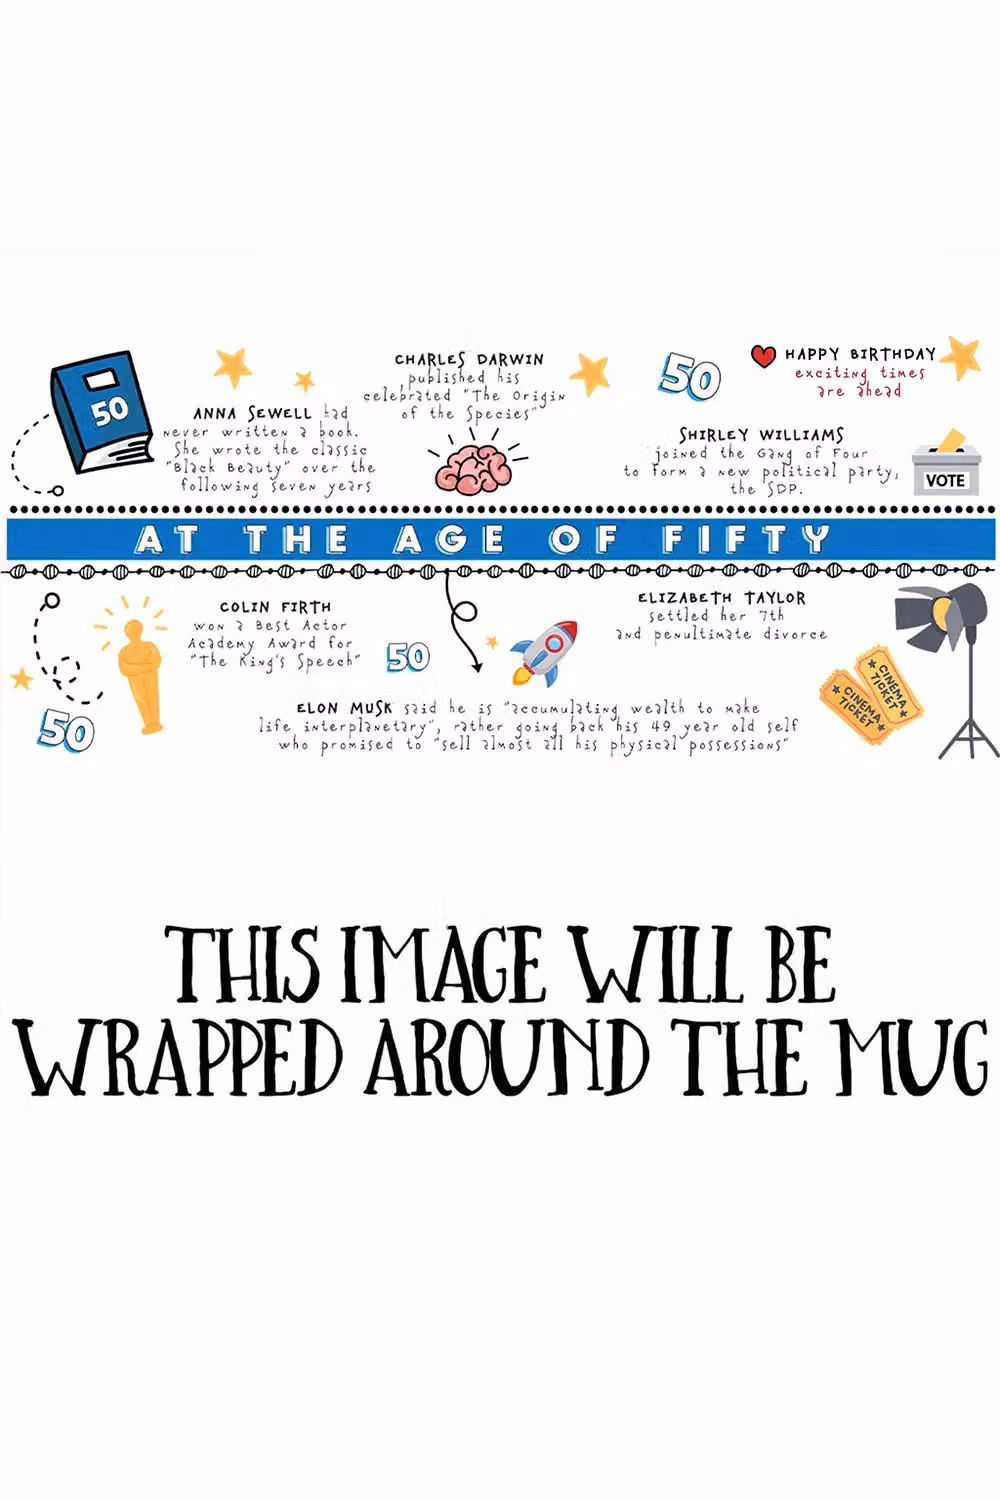 50
ANNA SEWELL had
never written a book.
She wrote the classic
"Black Beauty" over the
following seven years
CHARLES DARWIN
published his
celebrated "The Origin
of the Species"
50
HAPPY BIRTHDAY
exciting times
are ahead
SHIRLEY WILLIAMS
joined the Gang of Four
to form a new political party,
the SDP.
VOTE
AT THE AGE OF FIFTY
COLIN FIRTH
won a Best Actor
Academy Award for
"The King's Speech"
50
50
ELIZABETH TAYLOR
settled her 7th
and penultimate divorce
CINEMA
TICKET
CINEMA
TICKET
ELON MUSK said he is "accumulating wealth to make
life interplanetary", rather going back his 49 year old self
who promised to "sell almost all his physical possessions"
THIS IMAGE WILL BE
WRAPPED AROUND THE MUG